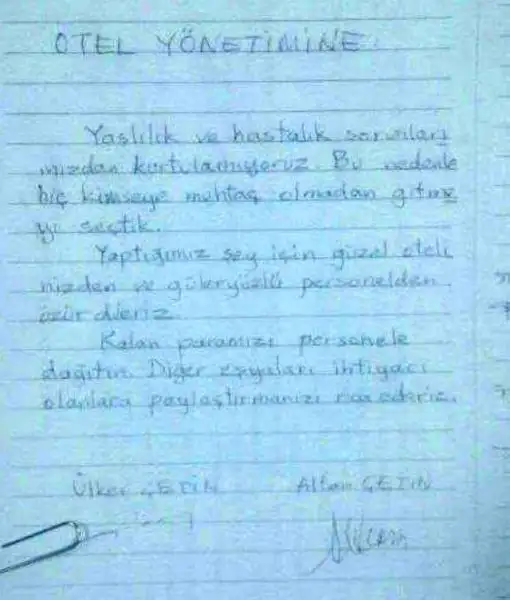 OTEL YÖNETİMİNE.
Yaşlılık ve hastalık sorunları
mızdan kurtulamıyoruz. Bu nedenle
hiç kimseye muhtaç olmadan gitme
yi seçtik.
Yaptığımız şey için güzel oteli
nizden ve güleryüzlü personelden
özür dileriz.
Kalan paramızı personele
dağıtın. Diğer eşyaları ihtiyacı
olanlara paylaştırmanızı rica ederiz.
Ülker ÇETİN Altan ÇETİN